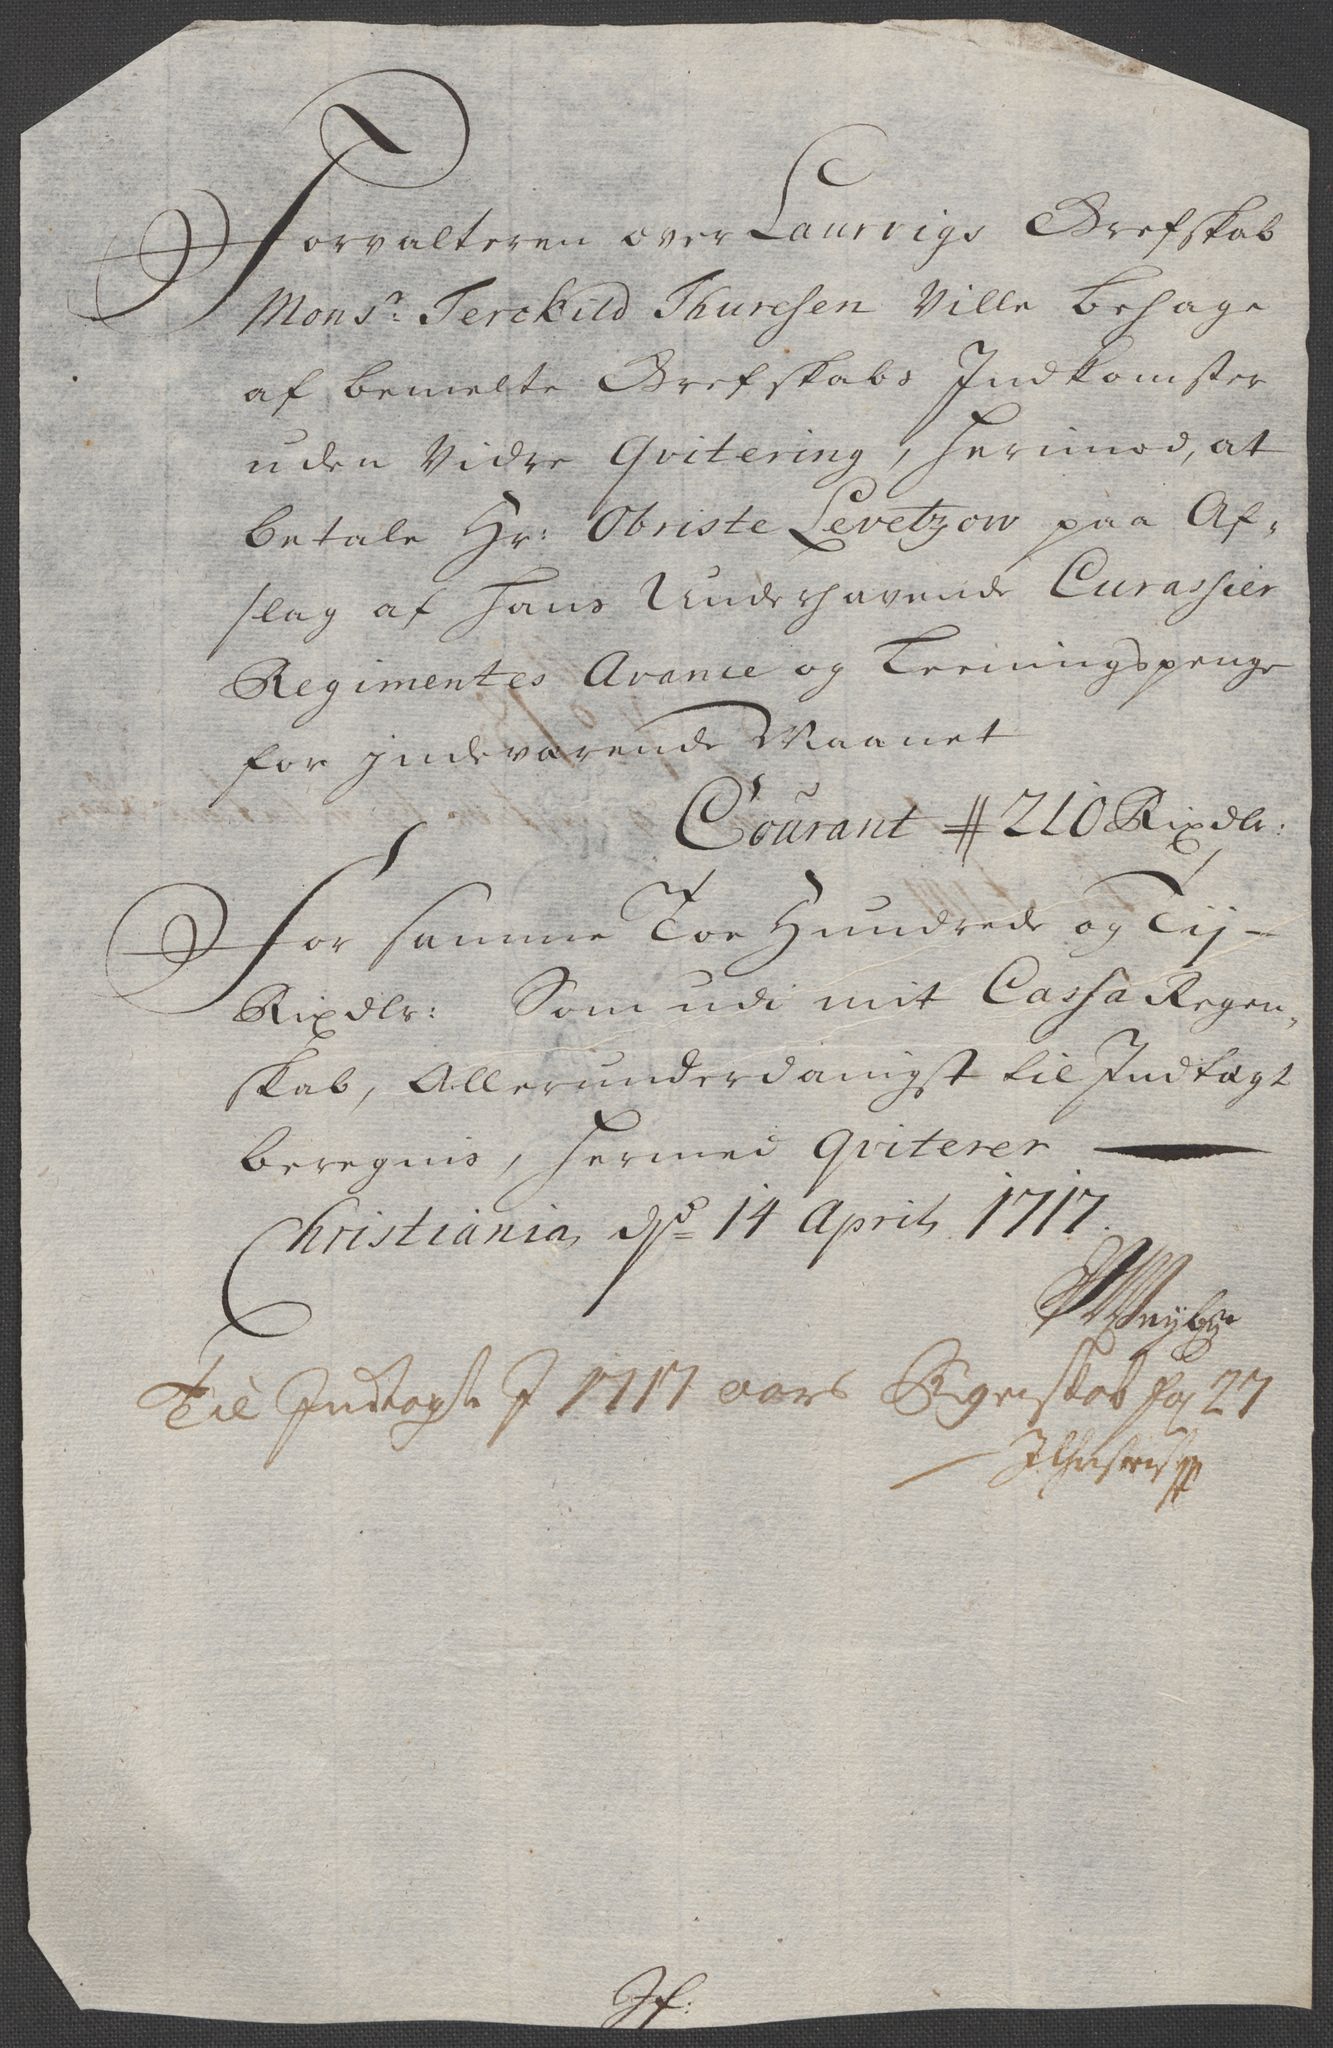 Forvalteren over Laurvigs Grefskab
Monsr: Terckild Thuresen Ville behage
af bemelte Grefskabs Indkomster
uden Vidre Qvitering, herimod, at
betale Hr: Obriste Levetzow paa Af-
slag af hans Underhavende Curassier
Regimentes Avance og Leeningspenge
for jndeværende Maanet
Courant # 210 Rixdlr:
For samme Toe Hundrede og Tij
Rixdlr: Som udi mit Cassa Regen-
skab, Allerunderdanigst til Indtægt
beregnis, hermed Qviterer
Christiania, dd 14 April 1717.
Til Indtægt J 1717 aars Regenskab pag 27